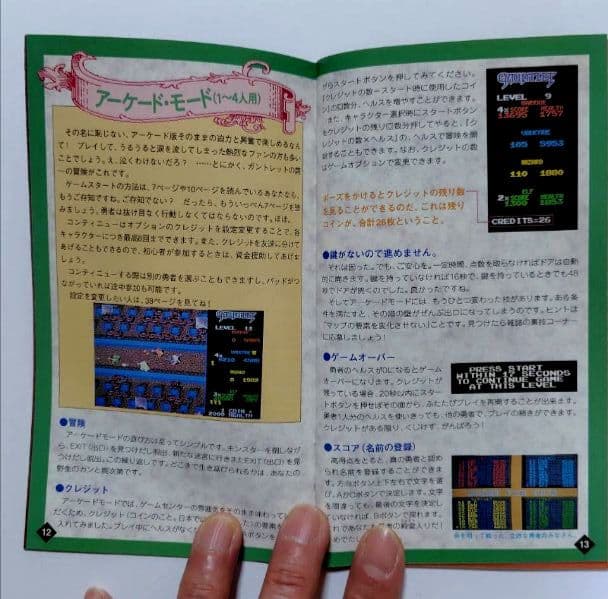 アーケード・モード(1〜4人用)
その名に恥じない、アーケード版そのままの迫力と興奮で楽しめるなん
て! プレイして、うるうると涙を流してしまった熱烈なファンの方も多い
ことでしょう。え、泣くわけないだろ? ……とにかく、ガントレットの数々
の冒険がこれです。
ゲームスタートの方法は、7ページや10ページを読んでいるあなたなら、
もうご存知ですね。ご存知でない? だったら、もういっぺん7ページを読
みましょう。勇者は抜け目なく行動しなくてはならないのです。ほほ。
コンティニューはオプションのクレジットを設定変更することで、各
キャラクターにつき最高
回までできます。また、クレジットを友達に分けて
あげることもできるので、初心者が参加するときは、資金援助してあげま
しょう。
コンティニューする際は別の勇者を選ぶこともできますし、パッドがつ
ながっていれば途中参加も可能です。
設定を変更したい人は、39ページを見てね!
LEVEL
COIN =
HEALTH
●冒険
アーケードモードの遊び方は至ってシンプルです。モンスターを倒しなが
ら、EXIT(出口)を見つけだし脱出。新たな迷宮に行きまたEXIT(出口)を見
つけだし脱出。この繰り返しです。どこまで生き延びられるかは、あなたの
野生のカンと腕次第です。
●クレジット
アーケードモードでは、ゲームセンターの雰囲気をそのまま味わって
だくため、クレジット(コインのこと。日本で
の要素を
入れてみました。プレイ中にヘルスがなく
12
がらスタートボタンを押してみてください。
「クレジットの数=スタート時に使用したコイ
ン」の回数分、ヘルスを増やすことができます。
また、キャラクター選択時にスタートボタン
をクレジットの残り回数分押してやると、「クレ
ジットの数×ヘルス」の、ヘルスで冒険を開
始することもできます。なお、クレジットの数
はゲームオプションで変更できます。
GAUNTLET
LEVEL 9
SCORE HEALTH
13695 1757
VALKYRIE
105 5953
WIZARD
110 1800
ELF
SCORE HEALTH
1300 1853
CREDITS=26
ポーズをかけるとクレジットの残り数
を見ることができるのだ。これは残り
コインが、合計26枚ということ。
●鍵がないので進めません。
それは困った。でも、ご安心を。一定時間、点数を取らなければドアは自動
的に開きます。鍵を持っていなければ16秒で、鍵を持っているときでも48
秒でドアが開くのでした。良かったですね。
そしてアーケードモードには、もうひとつ変わった技があります。ある条
件を満たすと、その面の壁がぜんぶ出口になってしまうのです。ヒントは
「マップの要素を変化させない」ことです。見つけたら雑誌の裏技コーナー
に応募しましょう!
●ゲームオーバー
勇者のヘルスが0になるとゲーム
オーバーになります。クレジットが
残っている場合、20秒以内にスター
トボタンを押せばその面から、ふたたびプレイを再開することが出来ます。
勇者1人分のヘルスを使いきっても、他の勇者で、プレイの続きができます。
クレジットがある限り、くじけず、がんばろう!
PRESS START
WITHIN 17 SECONDS
TO CONTINUE GAME
AT THIS LEVEL
●スコア(名前の登録)
高得点をとると、真の勇者と認め
られ名前を登録することができま
す。方向ボタン上下左右で文字を選
び、AかCボタンで決定します。文字
を間違っても、最後の文字を決定し
ていなければ、Bボタンで戻れます。
れであなた
の殿堂入りだ!
めでたし
13